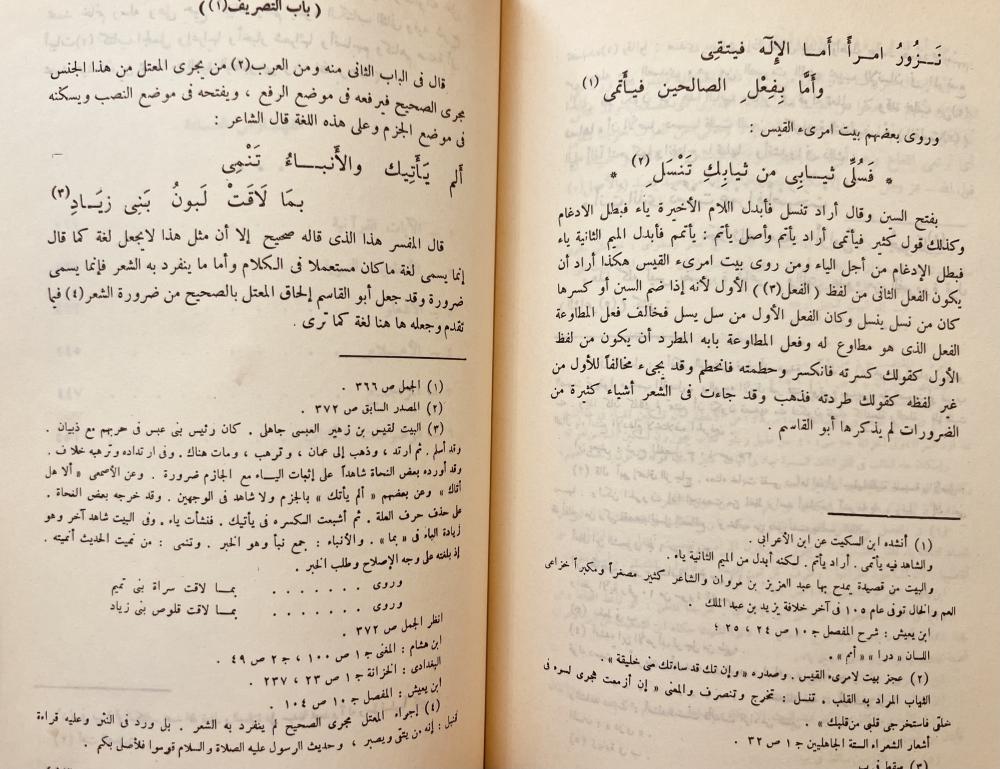 نَـزُورُ امـرأً أمـا الإلٓه فيتـقِى
وأمَّا بِفِعْلِ الصالحين فيأتَمى (١)
وروى بعضهم بيت امرىء القيس :
* فَسُلِّى ثيـابِى من ثيابِكِ تَنْسَلِ (٢) *
بفتح السين وقال أراد تنسل فأبدل اللام الأخيرة ياء فبطل الادغام
وكذلك قول كثير فيأتمى أراد يأتم وأصل يأتم : يأتمم فأبدل الميم الثانية ياء
فبطل الإدغام من أجل الياء ومن روى بيت امرىء القيس هكذا أراد أن
يكون الفعل الثانى من لفظ ( الفعل(٣) ) الأول لأنه إذا ضم السين أو كسرها
كان من نسل ينسل وكان الفعل الأول من سل يسل فخالف فعل المطاوعة
الفعل الذى هو مطاوع له وفعل المطاوعة بابه المطرد أن يكون من لفظ
الأول كقولك كسرته فانكسر وحطمته فانحطم وقد يجىء مخالفاً للأول من
غير لفظه كقولك طردته فذهب وقد جاءت فى الشعر أشياء كثيرة من
الضرورات لم يذكرها أبو القاسم .
(١) أنشده ابن السكيت عن ابن الأعرابي .
والشاهد فيه يأتمى . أراد يأتم . لكنه أبدل من الميم الثانية ياء .
والبيت من قصيدة يمدح بها عبد العزيز بن مروان والشاعر كثير مصغراً ومكبراً خزاعى
العم والخال توفى عام ١٠٥ فى آخر خلافة يزيد بن عبد الملك .
ابن يعيش : شرح المفصل جـ ١٠ ص ٢٤ ، ٢٥ ؛
اللسان « درا » « أمم » .
(٢) عجز بيت لامرىء القيس . وصدره « وإن تك قد ساءتك منى خليقة » .
الثياب المراد به القلب . تنسل : تخرج وتنصرف والمعنى « إن أزمعت هجرى لسوء فى
خلقى فاستخرجى قلبى من قلبك » .
أشعار الشعراء الستة الجاهليين جـ ١ ص ٣٢ .
(٣) سقط فى ب
( باب التصريف(١) )
قال فى الباب الثانى منه ومن العرب(٢) من يجرى المعتل من هذا الجنس
مجرى الصحيح فيرفعه فى موضع الرفع ، ويفتحه فى موضع النصب ويسكنه
فى موضع الجزم وعلى هذه اللغة قال الشاعر :
ألم يَـأتِيكَ والأَنبـاءُ تَنْمِى
بمَا لَاقَتْ لَبونُ بَنِى زيَـادِ (٣)
قال المفسر هذا الذى قاله صحيح إلا أن مثل هذا لايجعل لغة كما قال
إنما يسمى لغة ماكان مستعملا فى الكلام وأما ما ينفرد به الشعر فإنما يسمى
ضرورة وقد جعل أبو القاسم إلحاق المعتل بالصحيح من ضرورة الشعر(٤) فيما
تقدم وجعله ها هنا لغة كما ترى .
(١) الجمل ص ٣٦٦ .
(٢) المصدر السابق ص ٣٧٢ .
(٣) البيت لقيس بن زهير العبسى جاهلى . كان رئيس بنى عبس فى حربهم مع ذبيان .
وقد أسلم . ثم ارتد ، وذهب إلى عمان ، وترهب ، ومات هناك . وفى ارتداده وترهبه خلاف .
وقد أورده بعض النحاة شاهداً على إثبات اليـاء مع الجازم ضرورة . وعن الأصمعى « ألا هل
أتاك » وعن بعضهم « ألم يأتك » بالجزم ولا شاهد فى الوجهين . وقد خرجه بعض النحاة .
على حذف حرف العلة . ثم أشبعت الكسره فى يأتيك . فنشأت ياء . وفى البيت شاهد آخر وهو
زيادة الباء فى « بما » . والأنباء : جمع نبأ وهو الخبر . وتنمى : من نميت الحديث أنميته .
إذ بلغته على وجه الإصلاح وطلب الخير .
وروى . . . . . . . بمـا لاقت سراة بنى تميم
وروى . . . . . . . بمـا لاقت قلوص بنى زياد
انظر الجمل ص ٣٧٢ .
ابن هشام : المغنى جـ ١ ص ١٠٠ ، جـ ٢ ص ٤٩ .
البغدادى : الخزانة جـ ١ ص ٢٣ ، ٢٣٧ .
ابن يعيش : المفصل جـ ١٠ ص ١٠٤ .
(٤) إجراء المعتل مجرى الصحيح لم ينفرد به الشعر . بل ورد فى النثر وعليه قراءة
قنبل : إنه من يتقى ويصبر ، وحديث الرسول عليه الصلاة والسلام قوموا فلأصل بكم .